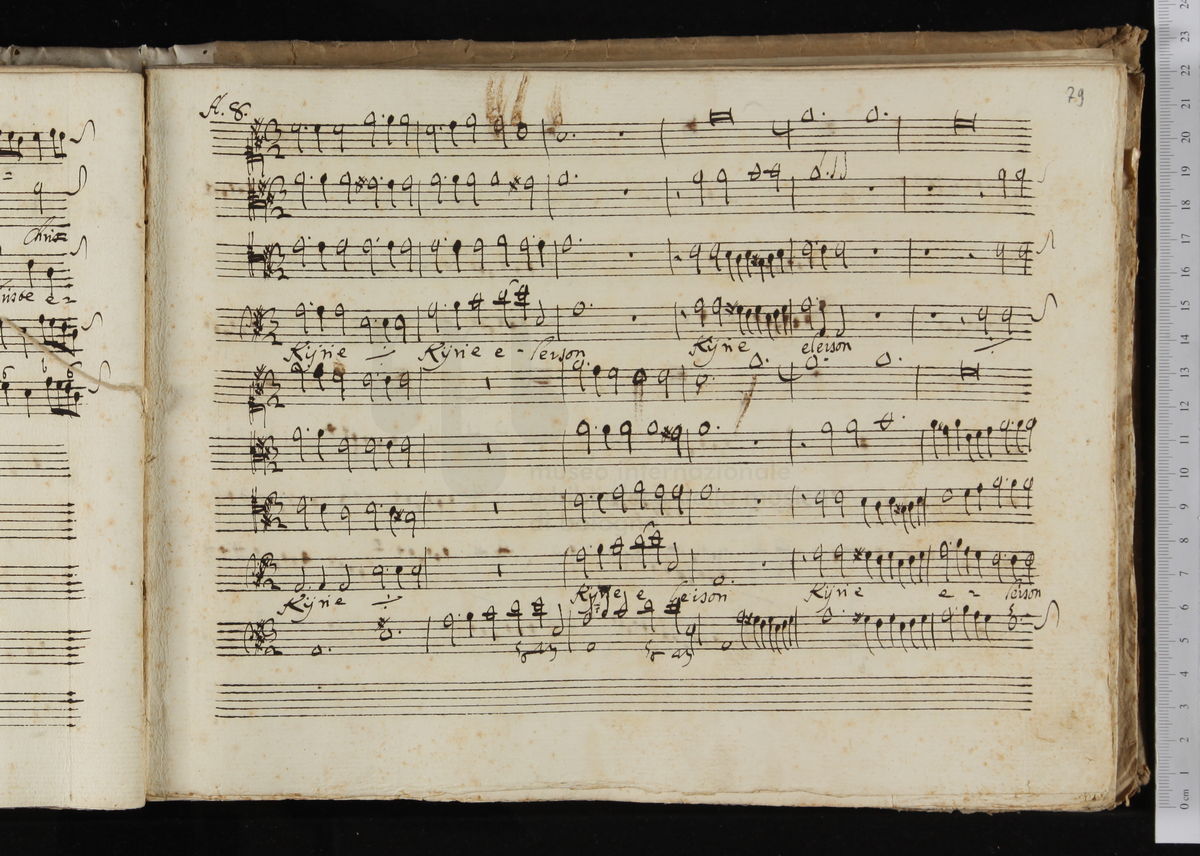 A. 8.
79
Christ
Kyrie Kyrie e - leison Kyrie eleison
museo internazionale
Kyrie Kyrie e leison Kyrie e = leison
0 cm 1 2 3 4 5 6 7 8 9 10 11 12 13 14 15 16 17 18 19 20 21 22 23 24